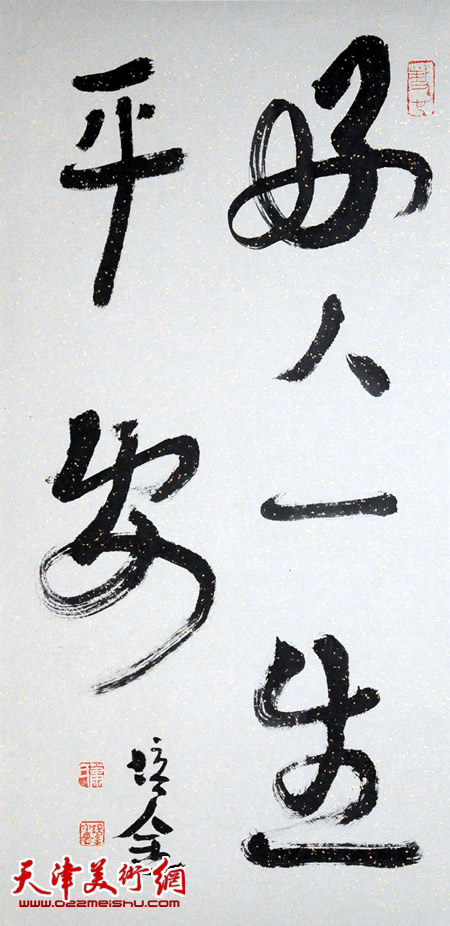 好人一生
平安
培金
天津美術網
www.022meishu.com